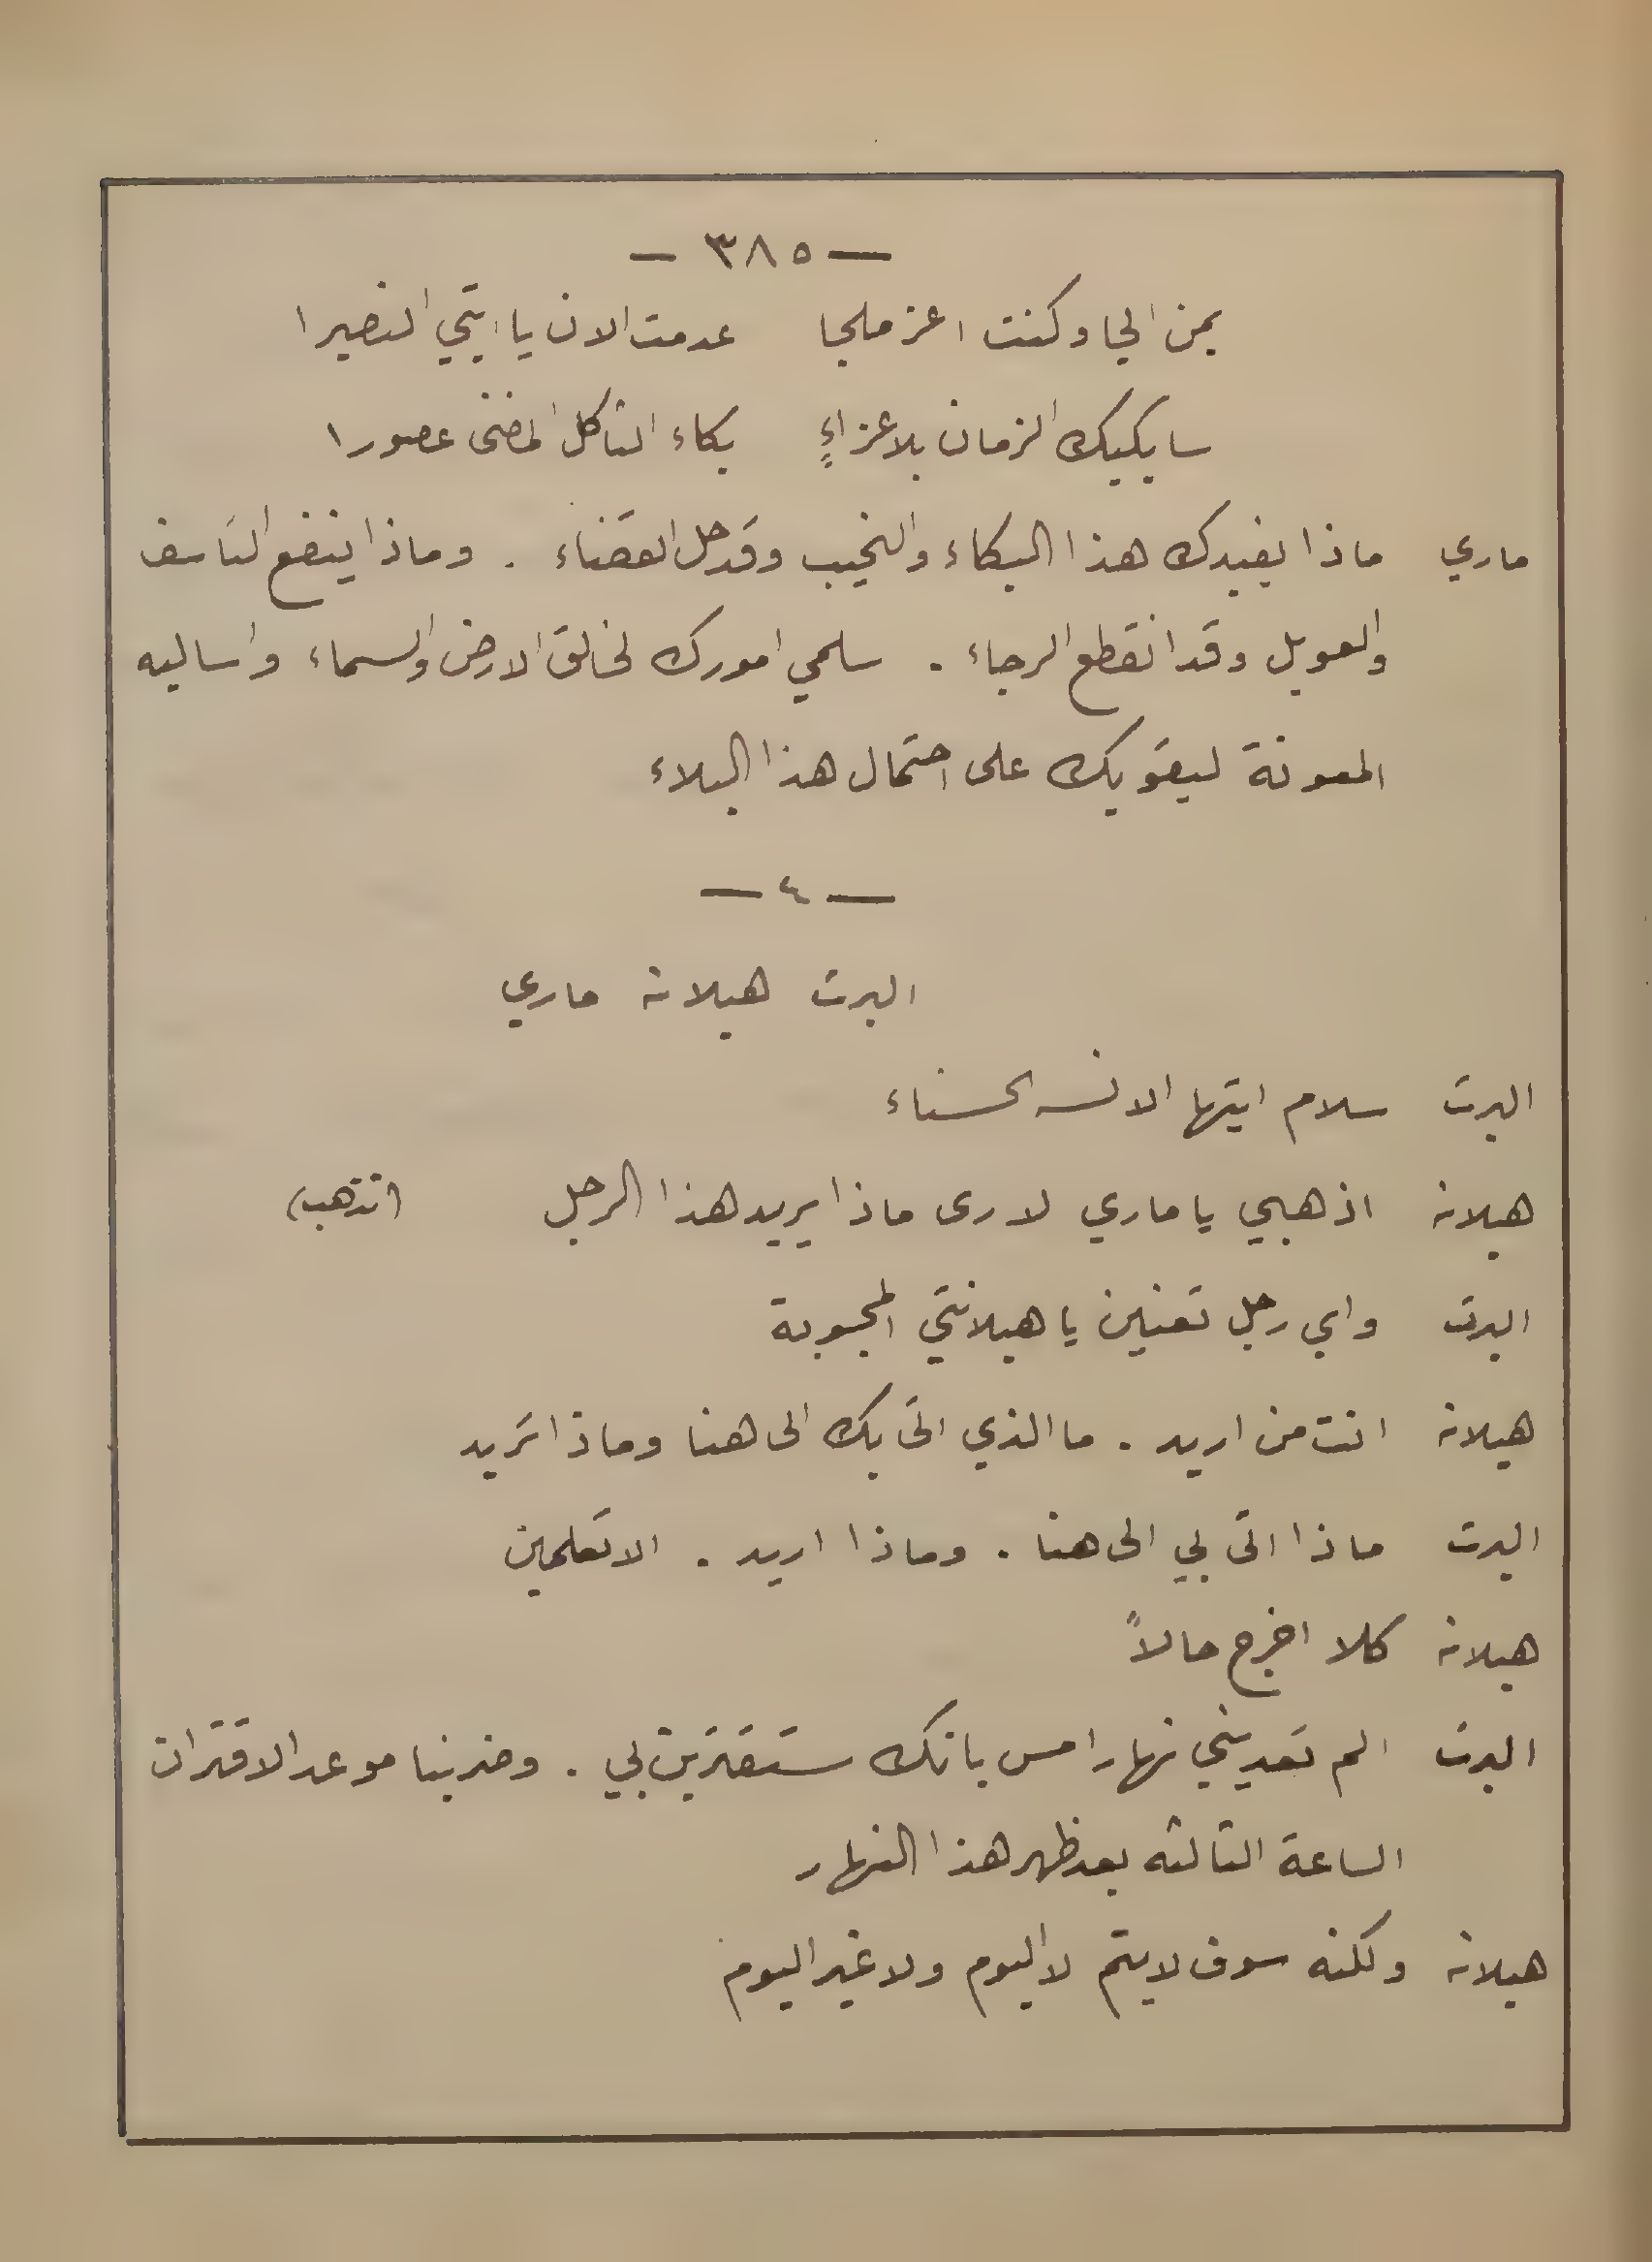 — ٣٨٥ —
بمن الجا وكنت اعز ملجا عدمت الان يا ابتي النصيرا
سابكيك الزمان بلا عزاءٍ بكاء الثاكل المضنى عصورا
ماري ماذا يفيدك هذا البكاء والنحيب وقد حل القضاء . وماذا ينفع التاسف
والعويل وقد انقطع الرجاء . سلمي امورك لخالق الارض والسماء واساليه
المعونة ليقويك على احتمال هذا البلاء
— ٤ —
البرت هيلانه ماري
البرت سلام ايتها الانسه الحسناء
هيلانه اذهبي يا ماري لارى ماذا يريد هذا الرجل (تذهب)
البرت واي رجل تعنين يا هيلانتي المحبوبة
هيلانه انت من اريد . ما الذي اتى بك الى هنا وماذا تريد
البرت ماذا اتى بي الى هنا . وماذا اريد . الا تعلمين
هيلانه كلا اخرج حالاً
البرت الم تعديني نهار امس بانك ستقترنين بي . وضربنا موعد الاقتران
الساعة الثالثه بعد ظهر هذا النهار
هيلانه ولكنه سوف لا يتم لا اليوم ولا غير اليوم